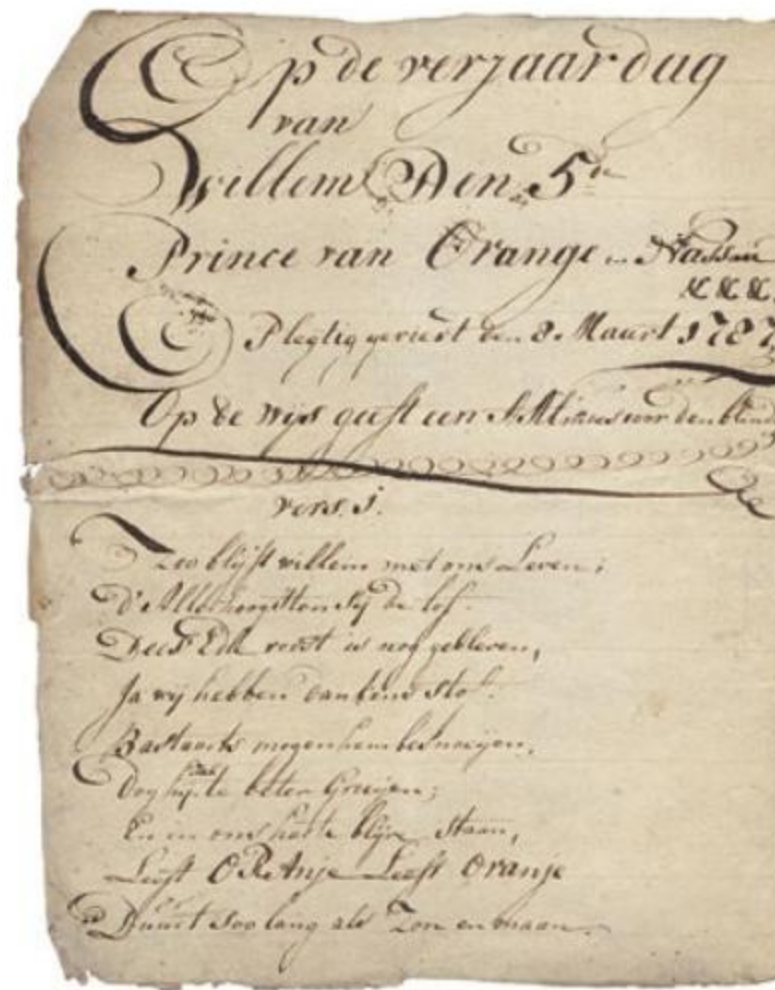 Op de verjaardag
van
Willem Den 5de
Prince van Orange en Nassau
&c &c &c
Plegtig geviert den 8. Maart 1787
Op de wijs geeft een voor den blind
vers. 1.
Zoo blijft willem met ons Leven;
D'Allerhoogsten zij de lof.
Deese Edle is nog gebleven,
Ja wij hebben dankens stof.
Bastaarts mogen hem besnoeijen,
Dog hij te beter Groeijen;
En in ons harte blijve staan,
Leeft ORAnje Leeft Oranje
Duurt soo lang als Zon en maan.